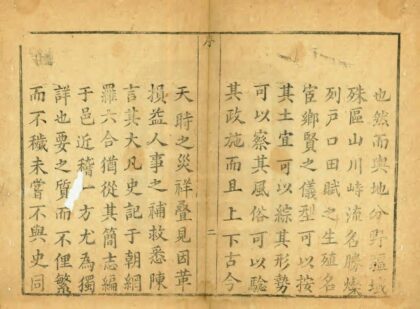 序
也然而輿地分野疆域
殊區山川峙流名勝燦
列戶口田賦之生殖名
宦鄉賢之儀型可以按
其土宜可以綜其形勢
可以察其風俗可以驗
其政施而且上下古今
二
天時之災祥疊見因革
損益人事之補救悉陳
言其大凡史記于朝綱
羅六合猶從其簡志編
于邑近稽一方尤為獨
詳也要之質而不俚繁
而不穢未嘗不與史同